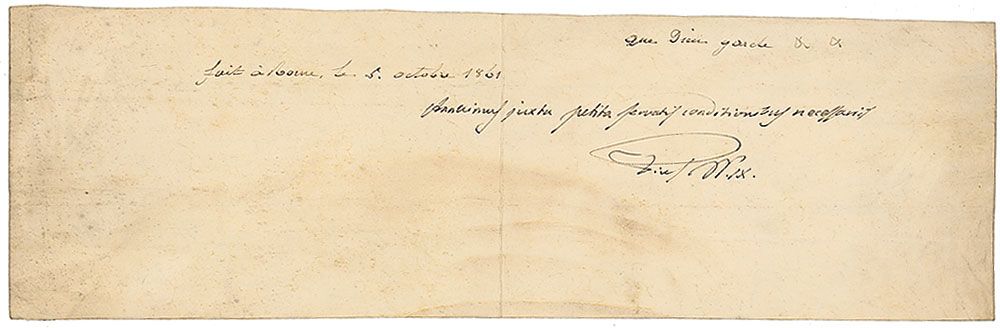 que Dieu garde & &
fait à Rome, le 5. octobre 1861
Annuimus juxta petita servatis conditionibus necessariis
Pius PP. IX.